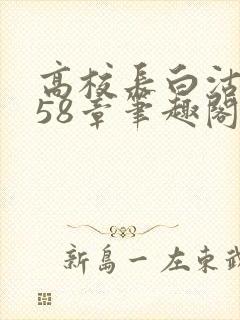 高校长白洁
58章笔趣阁
新島一 左東武